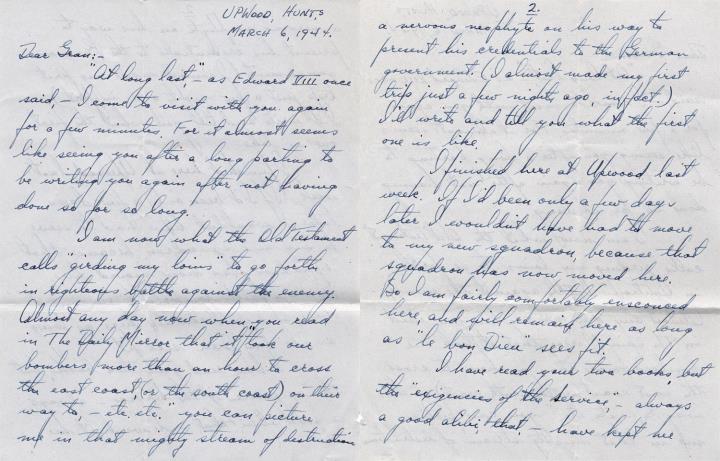 UPWOOD, HUNTS
MARCH 6, 1944.
Dear Gran:-
"At long last," - as Edward VIII once
said, - I come to visit with you again
for a few minutes. For it almost seems
like seeing you after a long parting to
be writing you again after not having
done so for so long.
I am now what the Old Testament
calls "girding my loins" to go forth
in righteous battle against the enemy.
Almost any day now when you read
in The Daily Mirror that it "took our
bombers more than an hour to cross
the east coast, (or the south coast) on their
way to, - etc. etc." you can picture
me in that mighty stream of destruction
2.
a nervous neophyte on his way to
present his credentials to the German
government. (I almost made my first
trip just a few nights ago, in fact.)
I'll write and tell you what the first
one is like.
I finished here at Upwood last
week. If I'd been only a few days
later I wouldn't have had to move
to my new squadron, because that
squadron has now moved here.
So I am fairly comfortably ensconced
here, and will remain here as long
as "le bon Dieu" sees fit.
I have read your two books, but
the "exigencies of the service", - always
a good alibi that, - have kept me